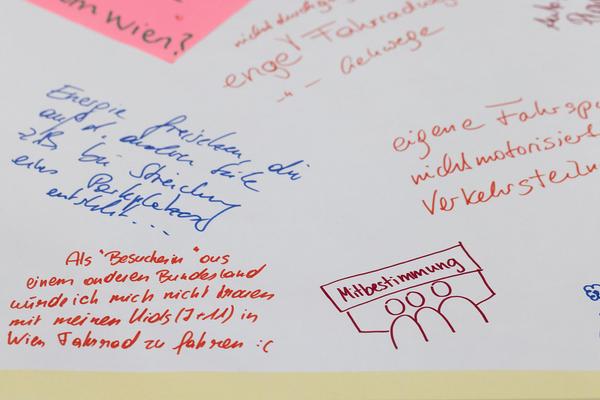 em Wien?
nicht durchg
enge Fahrradweg
-"- Gehwege
Energie freischen, die
auf d. andren Seite
z.B bei Streichung
eines Parkplatzes
entsteht...
eigene Fahrsp
nicht motorisiert
Verkehrsteiln
Als "Besucherin" aus
einem anderen Bundesland
würde ich mich nicht trauen
mit meinen Kids (7+11) in
Wien Fahrrad zu fahren :(
Mitbestimmung